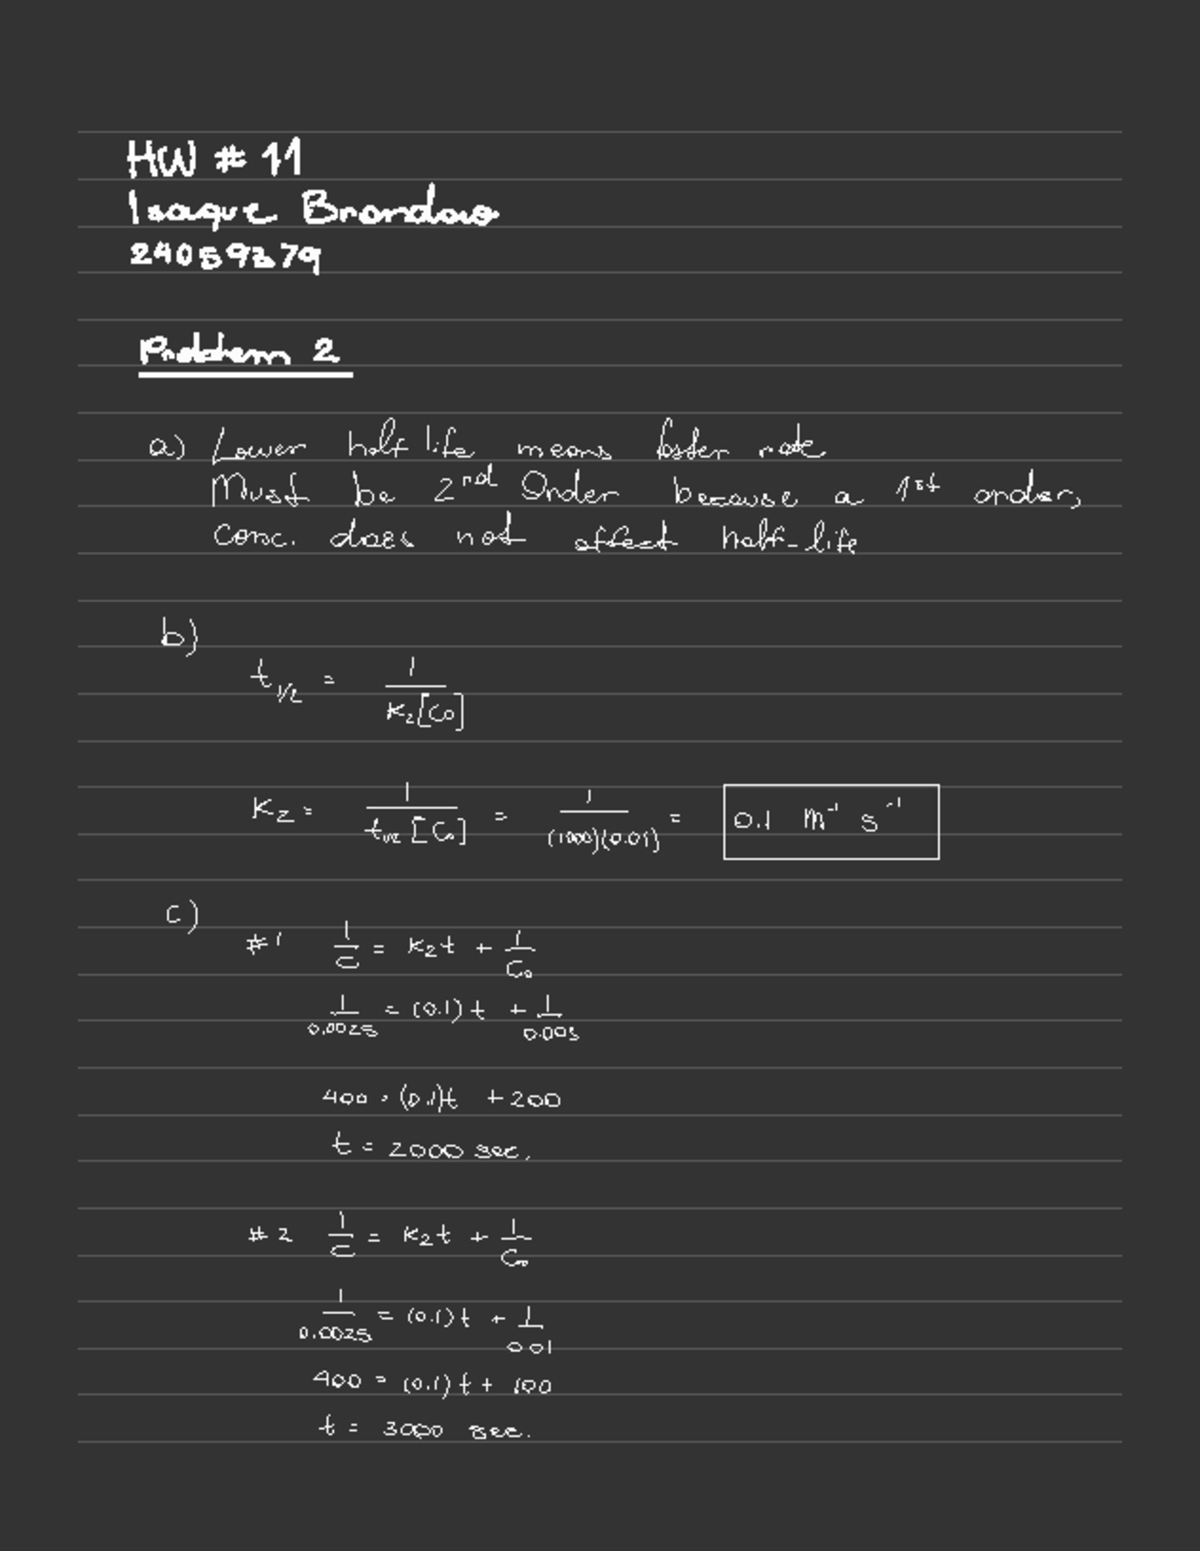 HW # 11
Isaque Brandao
24059379
Problem 2
a) Lower half life means faster rate
Must be 2nd Order because a 1st order,
conc. does not affect half-life
b)
t1/2 = 1/K2[Co]
K2 = 1/t1/2[Co] = 1/(1000)(0.01) = 0.1 M-1 s-1
c)
#1 1/C = K2t + 1/Co
1/0.0025 = (0.1)t + 1/0.005
400 = (0.1)t + 200
t = 2000 sec.
#2 1/C = K2t + 1/Co
1/0.0025 = (0.1)t + 1/0.01
400 = (0.1)t + 100
t = 3000 sec.